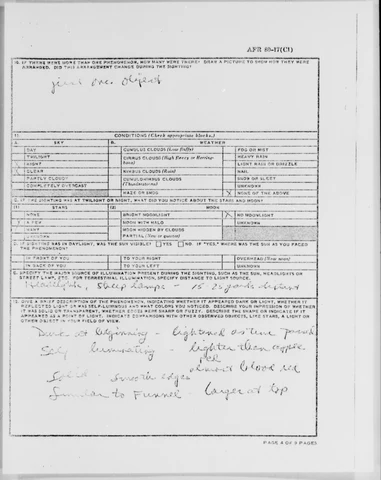 AFR 80-17(C1)
10. IF THERE WERE MORE THAN ONE PHENOMENON, HOW MANY WERE THERE? DRAW A PICTURE TO SHOW HOW THEY WERE
ARRANGED. DID THIS ARRANGEMENT CHANGE DURING THE SIGHTING?
just one object
11. CONDITIONS (Check appropriate blocks.)
A. SKY B. WEATHER
DAY CUMULUS CLOUDS (Low fluffy) FOG OR MIST
TWILIGHT CIRRUS CLOUDS (High fleecy or Herring-bone) HEAVY RAIN
X NIGHT LIGHT RAIN OR DRIZZLE
X CLEAR NIMBUS CLOUDS (Rain) HAIL
PARTLY CLOUDY CUMULONIMBUS CLOUDS (Thunderstorms) SNOW OR SLEET
COMPLETELY OVERCAST UNKNOWN
HAZE OR SMOG X NONE OF THE ABOVE
C. IF THE SIGHTING WAS AT TWILIGHT OR NIGHT, WHAT DID YOU NOTICE ABOUT THE STARS AND MOON?
(1) STARS (2) MOON
NONE BRIGHT MOONLIGHT X NO MOONLIGHT
A FEW MOON WITH HALO UNKNOWN
MANY MOON HIDDEN BY CLOUDS
UNKNOWN PARTIAL (New or quarter)
D. IF SIGHTING WAS IN DAYLIGHT, WAS THE SUN VISIBLE? YES NO. IF "YES," WHERE WAS THE SUN AS YOU FACED
THE PHENOMENON?
IN FRONT OF YOU TO YOUR RIGHT OVERHEAD (Near noon)
IN BACK OF YOU TO YOUR LEFT UNKNOWN
E. SPECIFY THE MAJOR SOURCE OF ILLUMINATION PRESENT DURING THE SIGHTING, SUCH AS SUN, HEADLIGHTS OR
STREET LAMP, ETC. FOR TERRESTRIAL ILLUMINATION, SPECIFY DISTANCE TO LIGHT SOURCE.
Headlights, lamps - 15 25 yards distant
12. GIVE A BRIEF DESCRIPTION OF THE PHENOMENON, INDICATING WHETHER IT APPEARED DARK OR LIGHT, WHETHER IT
REFLECTED LIGHT OR WAS SELF-LUMINOUS AND WHAT COLORS YOU NOTICED. DESCRIBE YOUR IMPRESSION OF WHETHER
IT WAS SOLID OR TRANSPARENT, WHETHER EDGES WERE SHARP OR FUZZY. DESCRIBE THE SHAPE OR INDICATE IF IT
APPEARED AS A POINT OF LIGHT. INDICATE COMPARISONS WITH OTHER OBSERVED OBJECTS, LIKE STARS, A LIGHT OR
OTHER OBJECT IN YOUR FIELD OF VIEW.
Dark at beginning - lightened as time passed
Self luminating lighter than apple
red
almost blood red
Solid - smooth edges
Similar to Funnel - larger at top
PAGE 4 OF 9 PAGES